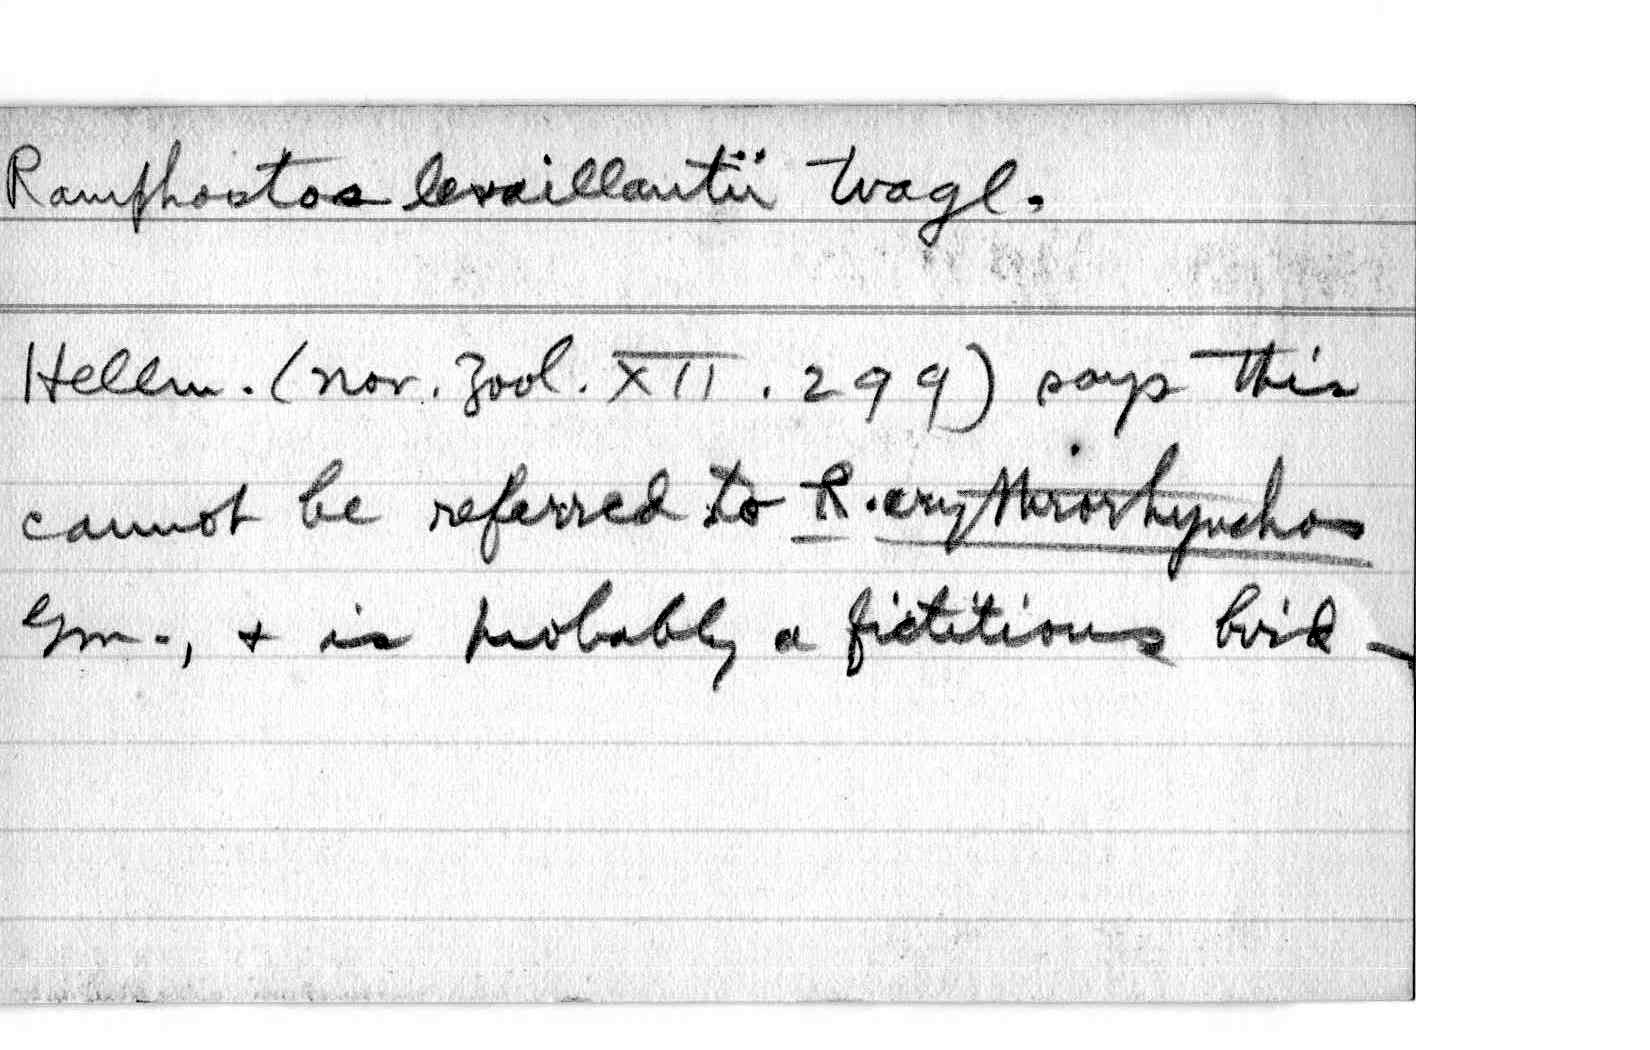 Ramphostos levaillantii Wagl.
Hellm. (Nov. Zool. XII. 299) says this
cannot be referred to R. erythrorhynchos
Gm., + is probably a fictitious bird -